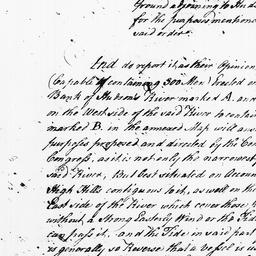 Ground adjoining to Hud
for the purposes mentione
said order
And do report it as their Opinion
(Capable of containing 300 Men) Erected on
Bank of Hudsons River marked A. and
on the West side of the said River to contain
marked B. in the annexed Map will ans
purposes proposed and directed by the Con
Congress, as it is not only the narrowest
said River, But best situated on Accoun
High Hills contiguous to it, as well on the
East side of the River which cover those p
without a Strong Easterly Wind or the Tide
can pass it. and the Tide in said part
is generally so Reverse that a Vessel is u